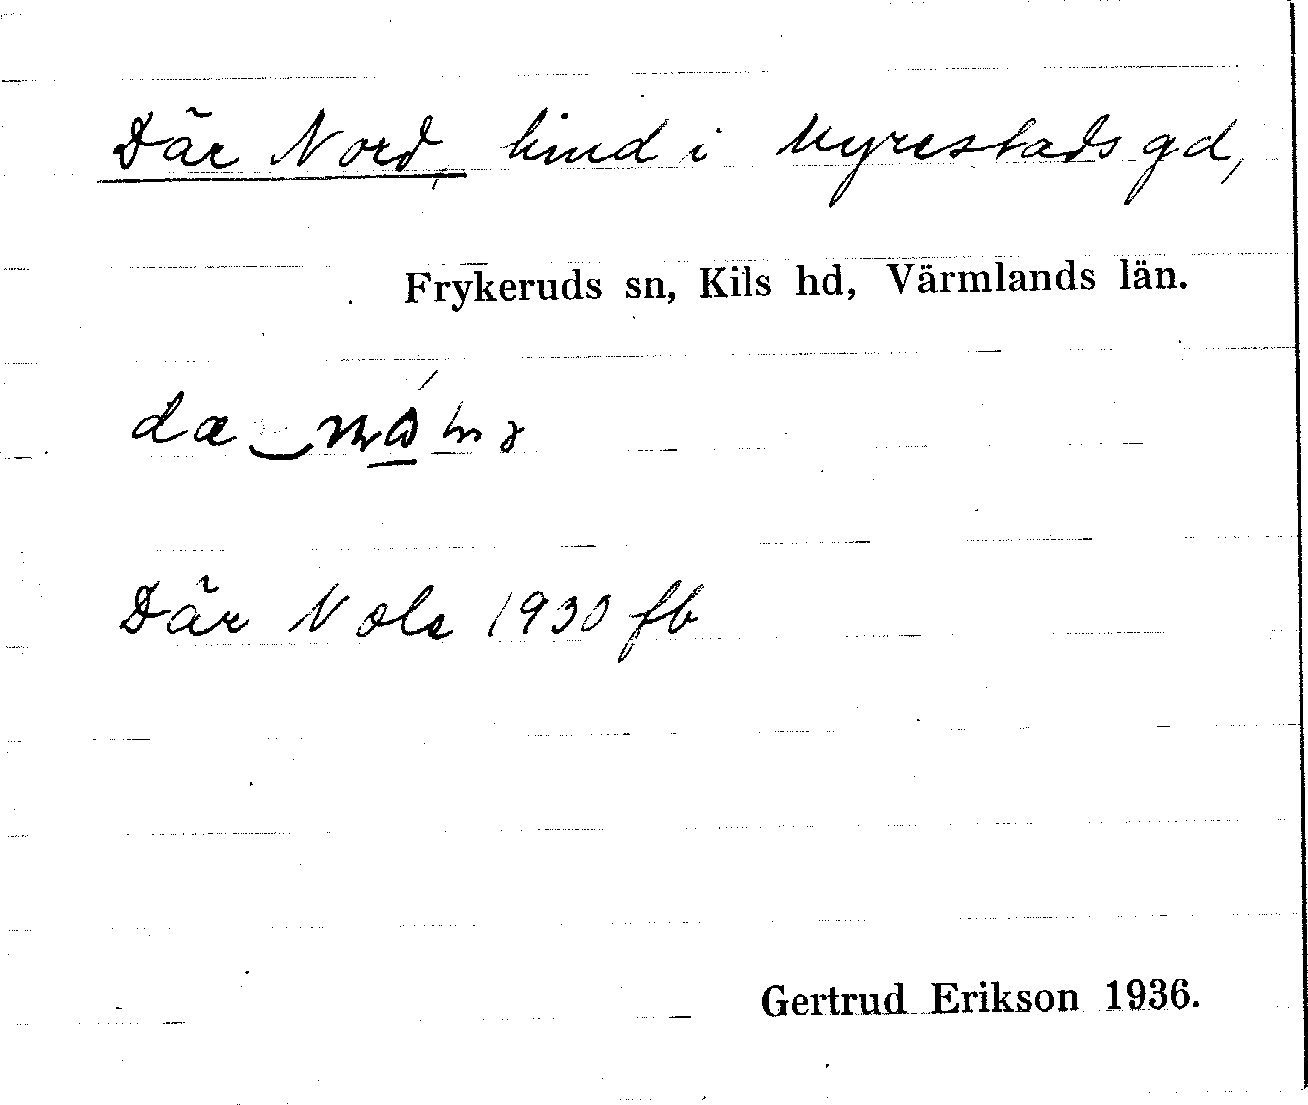 Där Nord, hmd i Myrestads gd,
Frykeruds sn, Kils hd, Värmlands län.
Där Nola 1930 fb
Gertrud Erikson 1936.